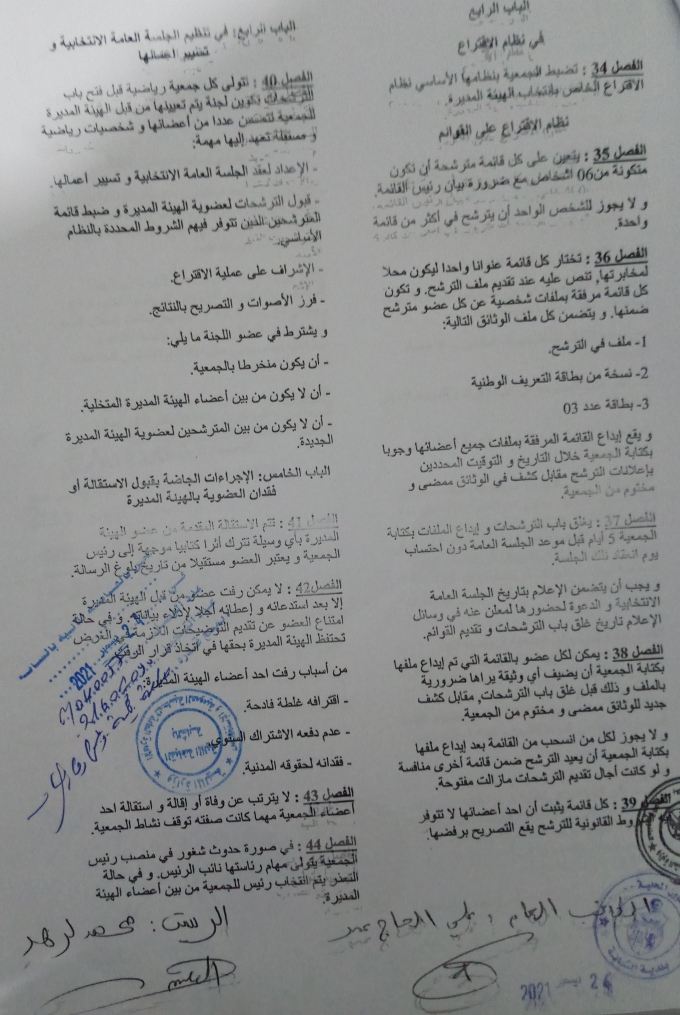 الباب الرابع
في نظام الاقتراع
الفصل 34 : تضبط الجمعية بنظامها الأساسي نظام
الاقتراع الخاص بانتخاب الهيئة المديرة.
نظام الاقتراع على القوائم
الفصل 35 : يتعين على كل قائمة مترشحة أن تكون
متكونة من06 اشخاص مع ضرورة بيان رئيس القائمة.
و لا يجوز للشخص الواحد أن يترشح في أكثر من قائمة
واحدة.
الفصل 36 : تختار كل قائمة عنوانا واحدا ليكون محلا
لمخابرتها, تنص عليه عند تقديم ملف الترشح. و تكون
كل قائمة مرفقة بملفات شخصية عن كل عضو مترشح
ضمنها. و يتضمن كل ملف الوثائق التالية:
1- ملف في الترشح.
2- نسخة من بطاقة التعريف الوطنية
3- بطاقة عدد 03
و يقع إيداع القائمة المرفقة بملفات جميع أعضائها وجوبا
بكتابة الجمعية خلال التاريخ و التوقيت المحددين
بإعلانات الترشح مقابل كشف في الوثائق ممضى و
مختوم من الجمعية.
الفصل 37 : يغلق باب الترشحات و إيداع الملفات بكتابة
الجمعية 5 أيام قبل موعد الجلسة العامة دون احتساب
يوم انعقاد تلك الجلسة.
و يجب أن يتضمن الإعلام بتاريخ الجلسة العامة
الانتخابية و الدعوة لحضورها لمعلن عنه في وسائل
الإعلام تاريخ غلق باب الترشحات و تقديم القوائم.
الفصل 38 : يمكن لكل عضو بالقائمة التي تم إيداع ملفها
بكتابة الجمعية أن يضيف أي وثيقة يراها ضرورية
بالملف و ذلك قبل غلق باب الترشحات, مقابل كشف
جديد للوثائق ممضى و مختوم من الجمعية.
و لا يجوز لكل من انسحب من القائمة بعد إيداع ملفها
بكتابة الجمعية أن يعيد الترشح ضمن قائمة أخرى منافسة
و لو كانت أجال تقديم الترشحات مازالت مفتوحة.
الفصل 39 : كل قائمة يثبت أن احد أعضائها لا تتوفر
الشروط القانونية للترشح يقع التصريح برفضها.
الكاتب العام : علي الحاج
26 2021
الباب الرابع: في تنظيم الجلسة العامة الانتخابية و
تسيير اعمالها
الفصل 40 : تتولى كل جمعية رياضية قبل فتح باب
الترشحات تكوين لجنة يتم تعيينها من قبل الهيئة المديرة
للجمعية تتضمن عددا من أعضائها و شخصيات رياضية
و مستقلة تعهد إليها مهمة:
- الإعداد لعقد الجلسة العامة الانتخابية و تسيير أعمالها.
- قبول الترشحات لعضوية الهيئة المديرة و ضبط قائمة
المترشحين الذين تتوفر فيهم الشروط المحددة بالنظام
الأساسي.
- الإشراف على عملية الاقتراع.
- فرز الأصوات و التصريح بالنتائج.
و يشترط في عضو اللجنة ما يلي:
- أن يكون منخرطا بالجمعية.
- أن لا يكون من بين أعضاء الهيئة المديرة المتخلية.
- أن لا يكون من بين المترشحين لعضوية الهيئة المديرة
الجديدة.
الباب الخامس: الإجراءات الخاصة بقبول الاستقالة أو
فقدان العضوية بالهيئة المديرة
الفصل 41 : تتم الاستقالة المقدمة من عضو الهيئة
المديرة بأي وسيلة تترك أثرا كتابيا موجهة إلى رئيس
الجمعية و يعتبر العضو مستقيلا من تاريخ بلوغ الرسالة.
الفصل42 : لا يمكن رفت عضو من قبل الهيئة المديرة
إلا بعد استدعائه و إعطائه أجلا لإدلاء ببياناته. و في حالة
امتناع العضو عن تقديم التوضيحات اللازمة في الغرض
تحتفظ الهيئة المديرة بحقها في اتخاذ قرار الرفت.
من أسباب رفت احد أعضاء الهيئة المديرة:
- اقترافه غلطة فادحة.
- عدم دفعه الاشتراك السنوي.
- فقدانه لحقوقه المدنية.
الفصل 43 : لا يترتب عن وفاة أو إقالة و استقالة احد
أعضاء الجمعية مهما كانت صفته توقف نشاط الجمعية.
الفصل 44 : في صورة حدوث شغور في منصب رئيس
الجمعية يتولى مهام رئاستها نائب الرئيس. و في حالة
التعذر يتم انتخاب رئيس للجمعية من بين أعضاء الهيئة
المديرة.
2021